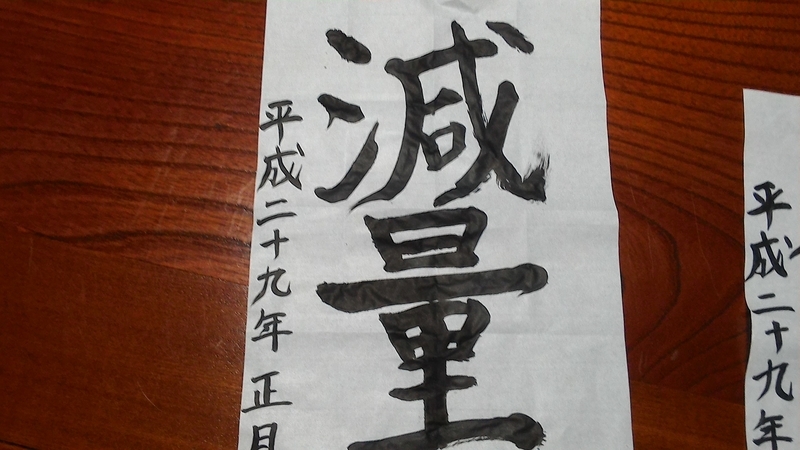 減量
平成二十九年 正月
平成二十九年